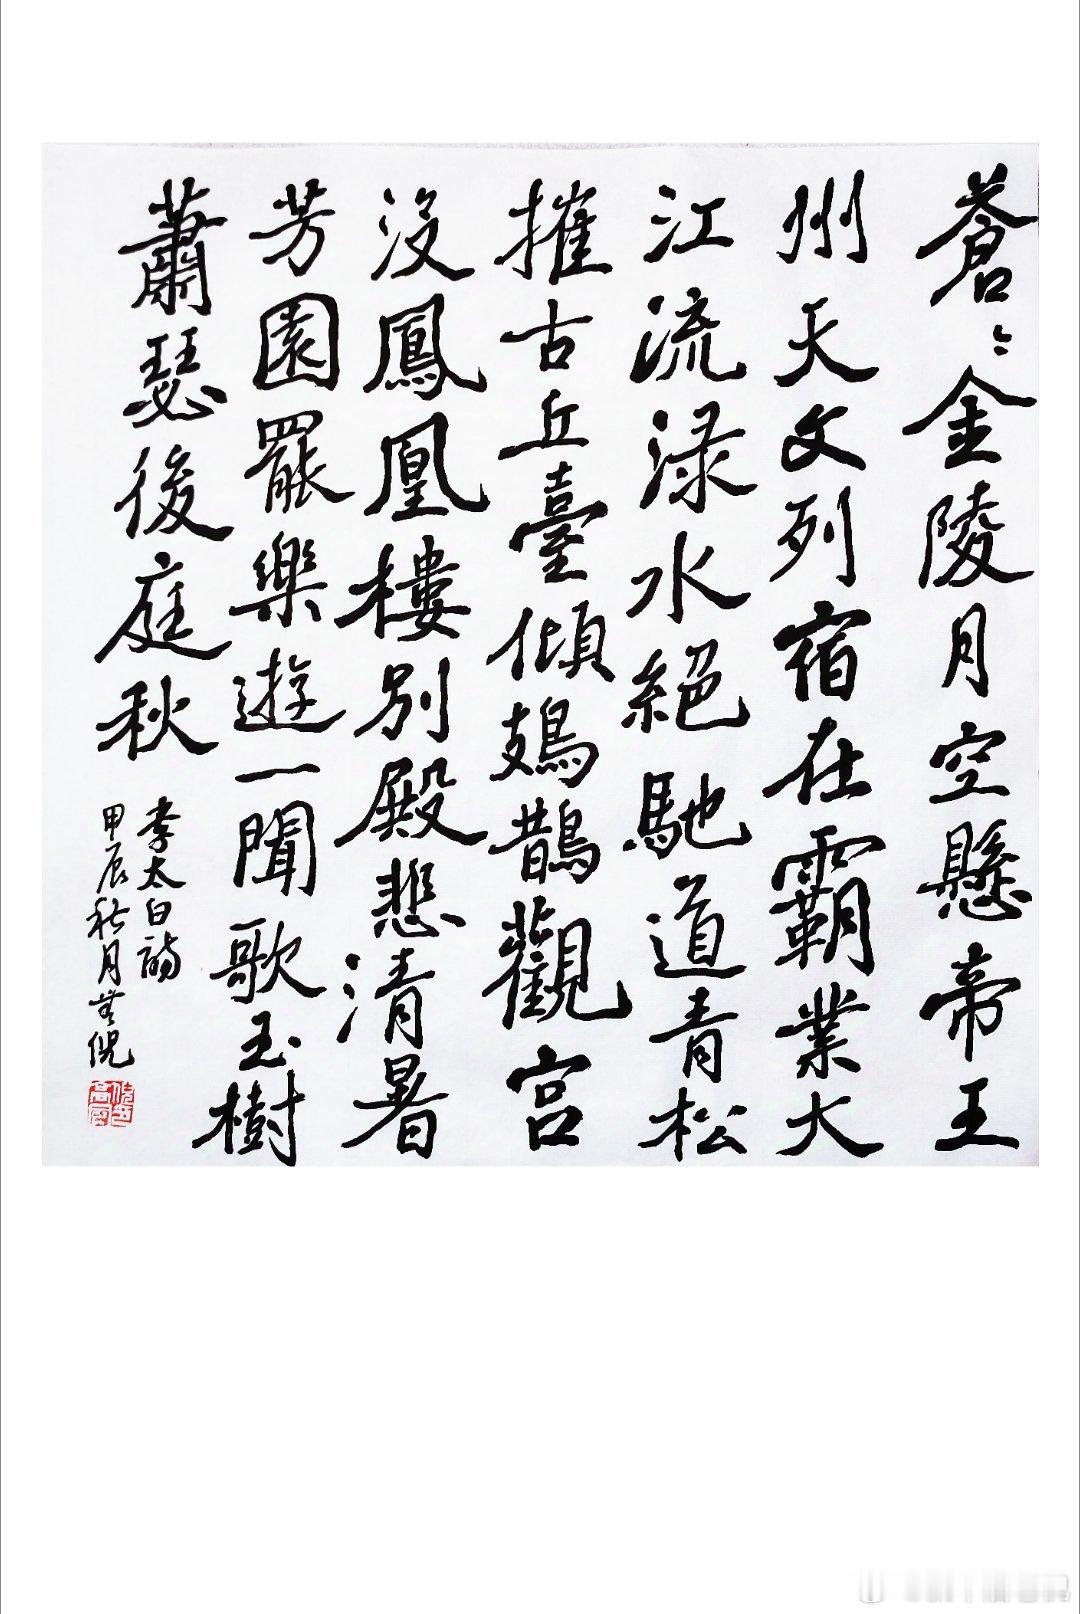 蒼〻金陵月空懸帝王
州天文列宿在霸業大
江流淥水絕馳道青松
摧古丘臺傾鳷鵲觀宮
沒鳳凰樓別殿悲清暑
芳園罷樂遊一聞歌玉樹
蕭瑟後庭秋
李太白詩
甲辰秋月